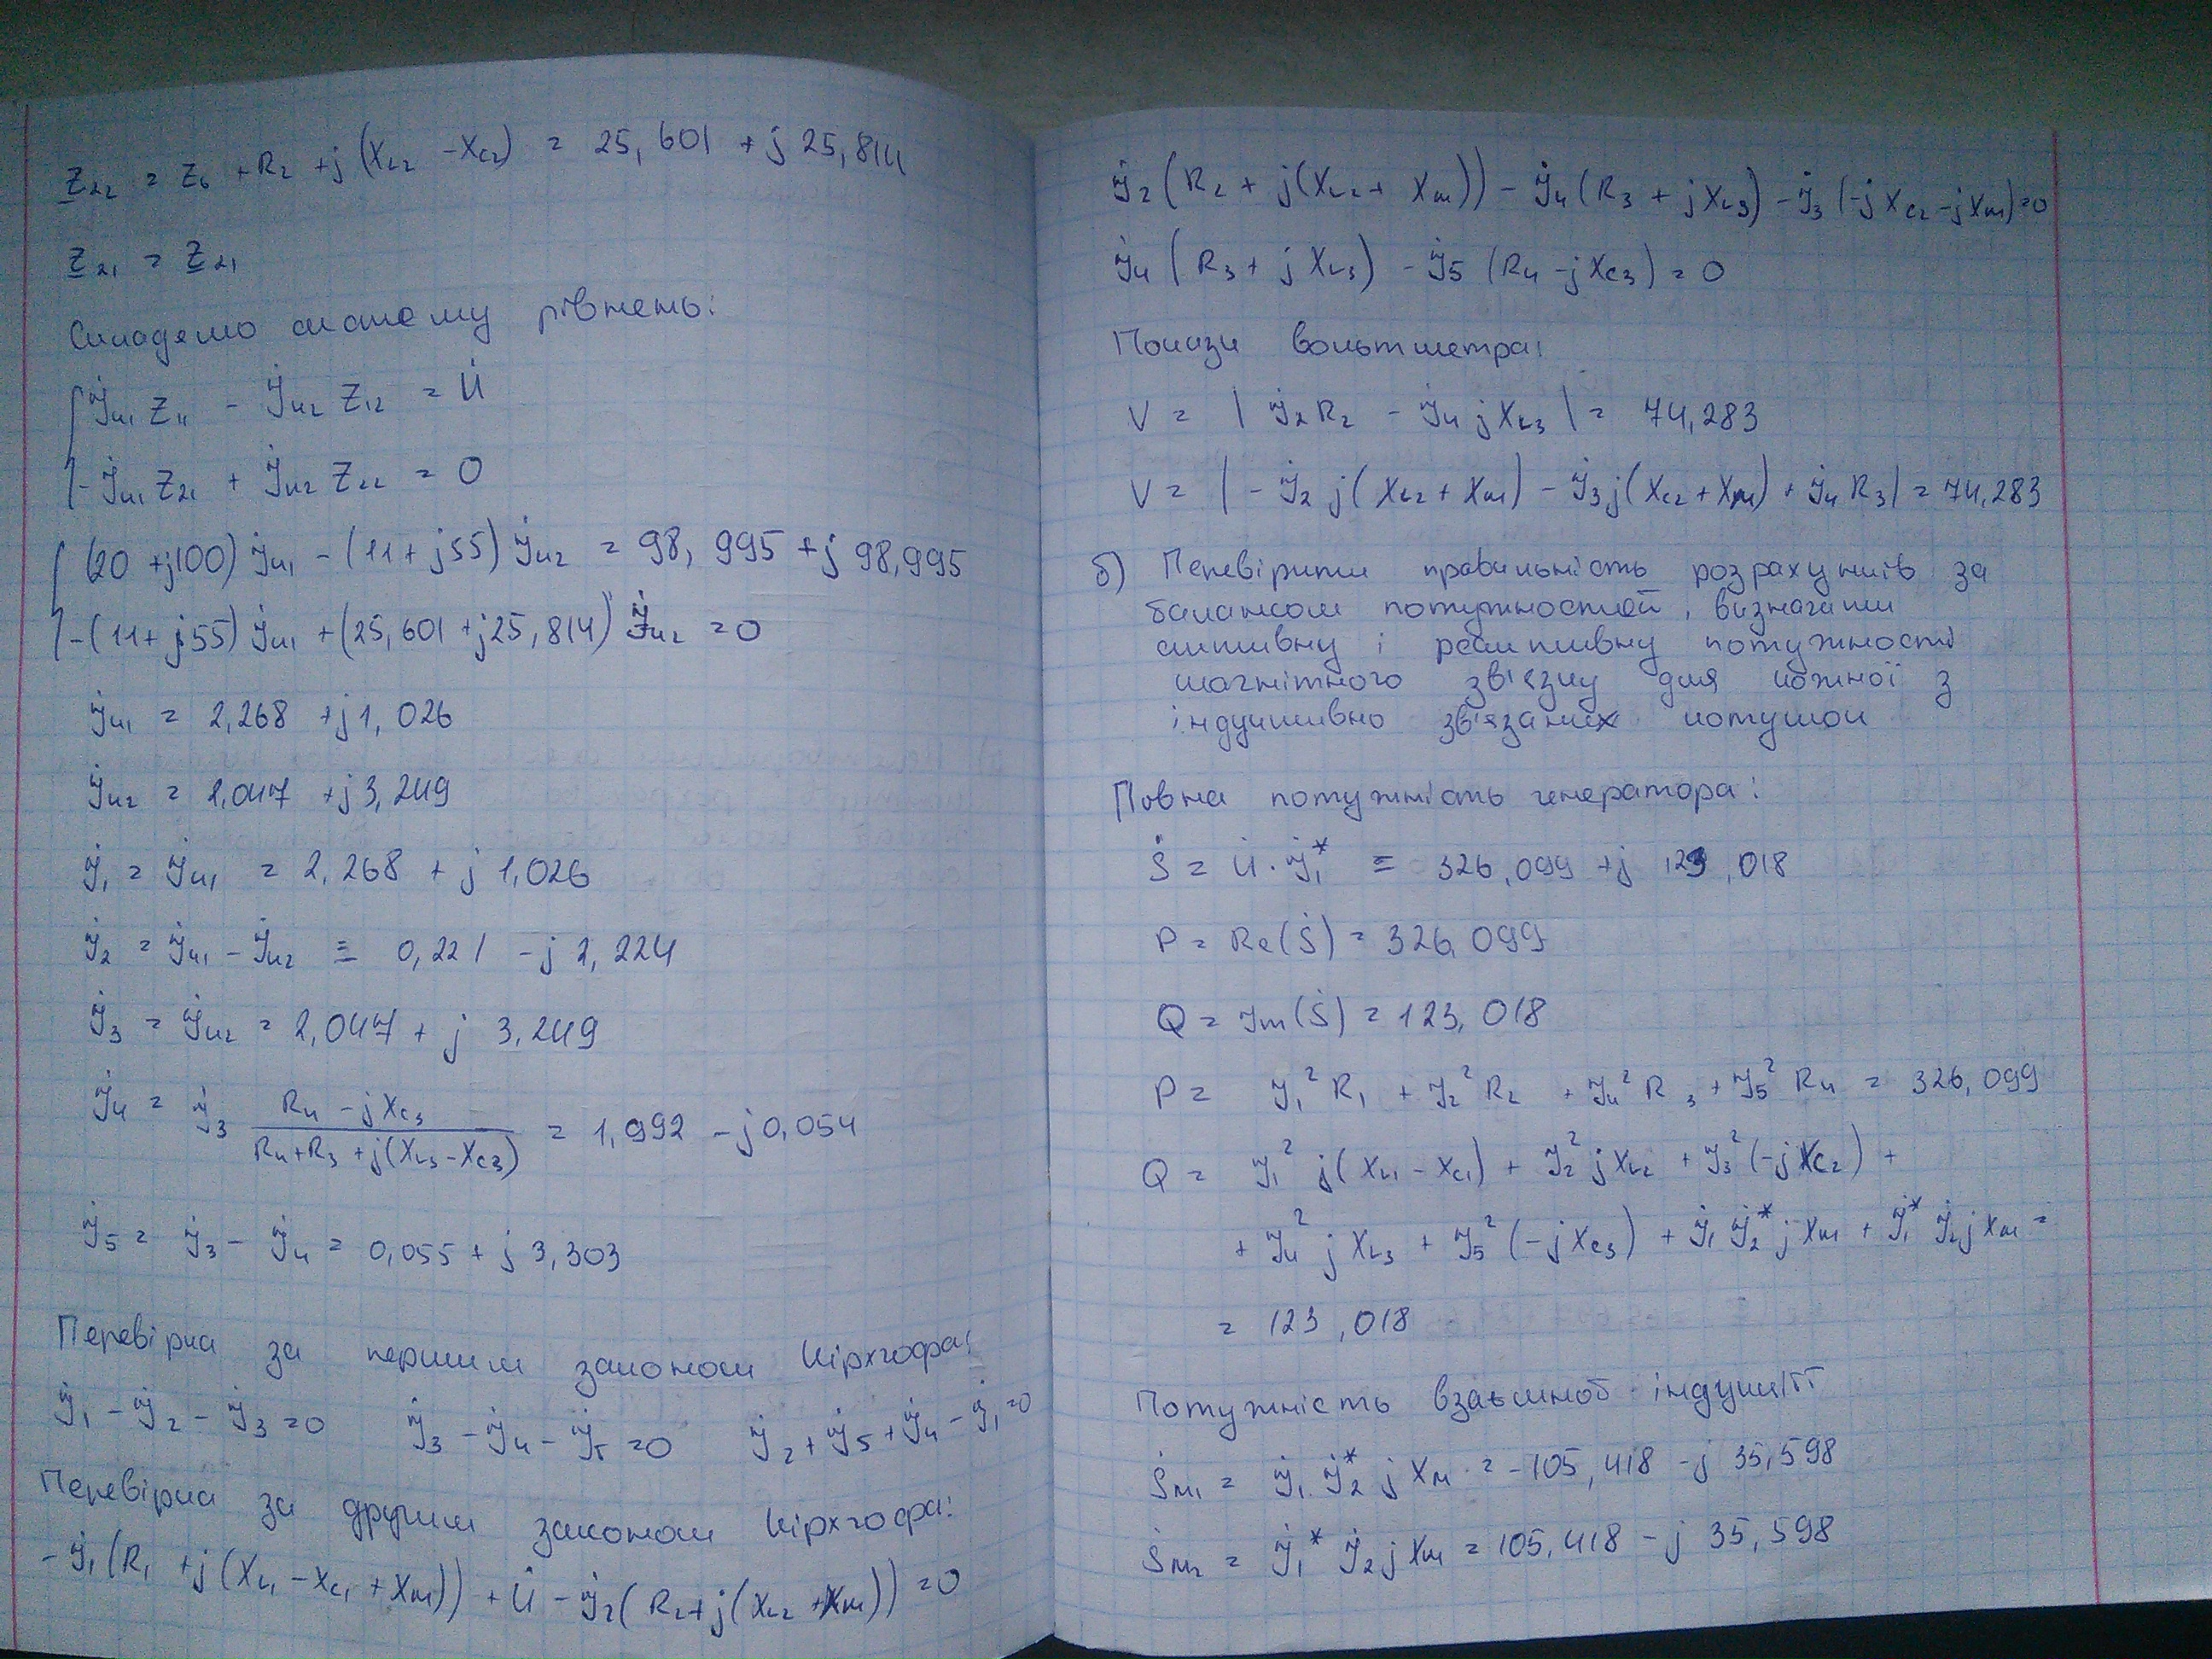 Z₂₂ = Z₆ + R₂ + j(X_L2 - X_C2) = 25,601 + j 25,814
Z₂₁ = Z₂₁
Складемо систему рівнень:
İк1 Z11 - İк2 Z12 = U̇
-İк1 Z21 + İк2 Z22 = 0
(20 + j100) İк1 - (11 + j55) İк2 = 98,995 + j 98,995
-(11 + j55) İк1 + (25,601 + j25,814) İк2 = 0
İк1 = 2,268 + j1,026
İк2 = 2,047 + j3,249
İ1 = İк1 = 2,268 + j 1,026
İ2 = İк1 - İк2 = 0,221 - j 2,224
İ3 = İк2 = 2,047 + j 3,249
İ4 = İ3 (R4 - jXC3) / (R4 + R3 + j(XL3 - XC3)) = 1,992 - j0,054
İ5 = İ3 - İ4 = 0,055 + j 3,303
Перевірка за першим законом Кірхгофа:
İ1 - İ2 - İ3 = 0 İ3 - İ4 - İ5 = 0 İ2 + İ5 + İ4 - İ1 = 0
Перевірка за другим законом Кірхгофа:
-İ1(R1 + j(XL1 - XC1 + XM)) + U̇ - İ2(R2 + j(XL2 + XM)) = 0
İ2(R2 + j(XL2 + XM)) - İ4(R3 + jXL3) - İ3(-jXC2 - jXM) = 0
İ4(R3 + jXL3) - İ5(R4 - jXC3) = 0
Покази вольтметра:
V = | İ2R2 - İ4 jXL3 | = 74,283
V = | -İ2 j(XL2 + XM) - İ3j(XC2 + XM) + İ4 R3 | = 74,283
б) Перевірити правильність розрахунків за
балансом потужностей, визначити
активну і реактивну потужності
магнітного зв'язку для кожної з
індуктивно зв'язаних котушок
Повна потужність генератора:
Ṡ = U̇ · İ1* = 326,099 + j 123,018
P = Re(Ṡ) = 326,099
Q = Im(Ṡ) = 123,018
P = I1² R1 + I2² R2 + I4² R3 + I5² R4 = 326,099
Q = I1² j(XL1 - XC1) + I2² jXL2 + I3² (-jXC2) +
+ I4² jXL3 + I5² (-jXC3) + İ1 İ2* jXM + İ1* İ2 jXM =
= 123,018
Потужність взаємної індукції
ṠM1 = İ1 İ2* jXM = -105,418 - j 35,598
ṠM2 = İ1* İ2 jXM = 105,418 - j 35,598